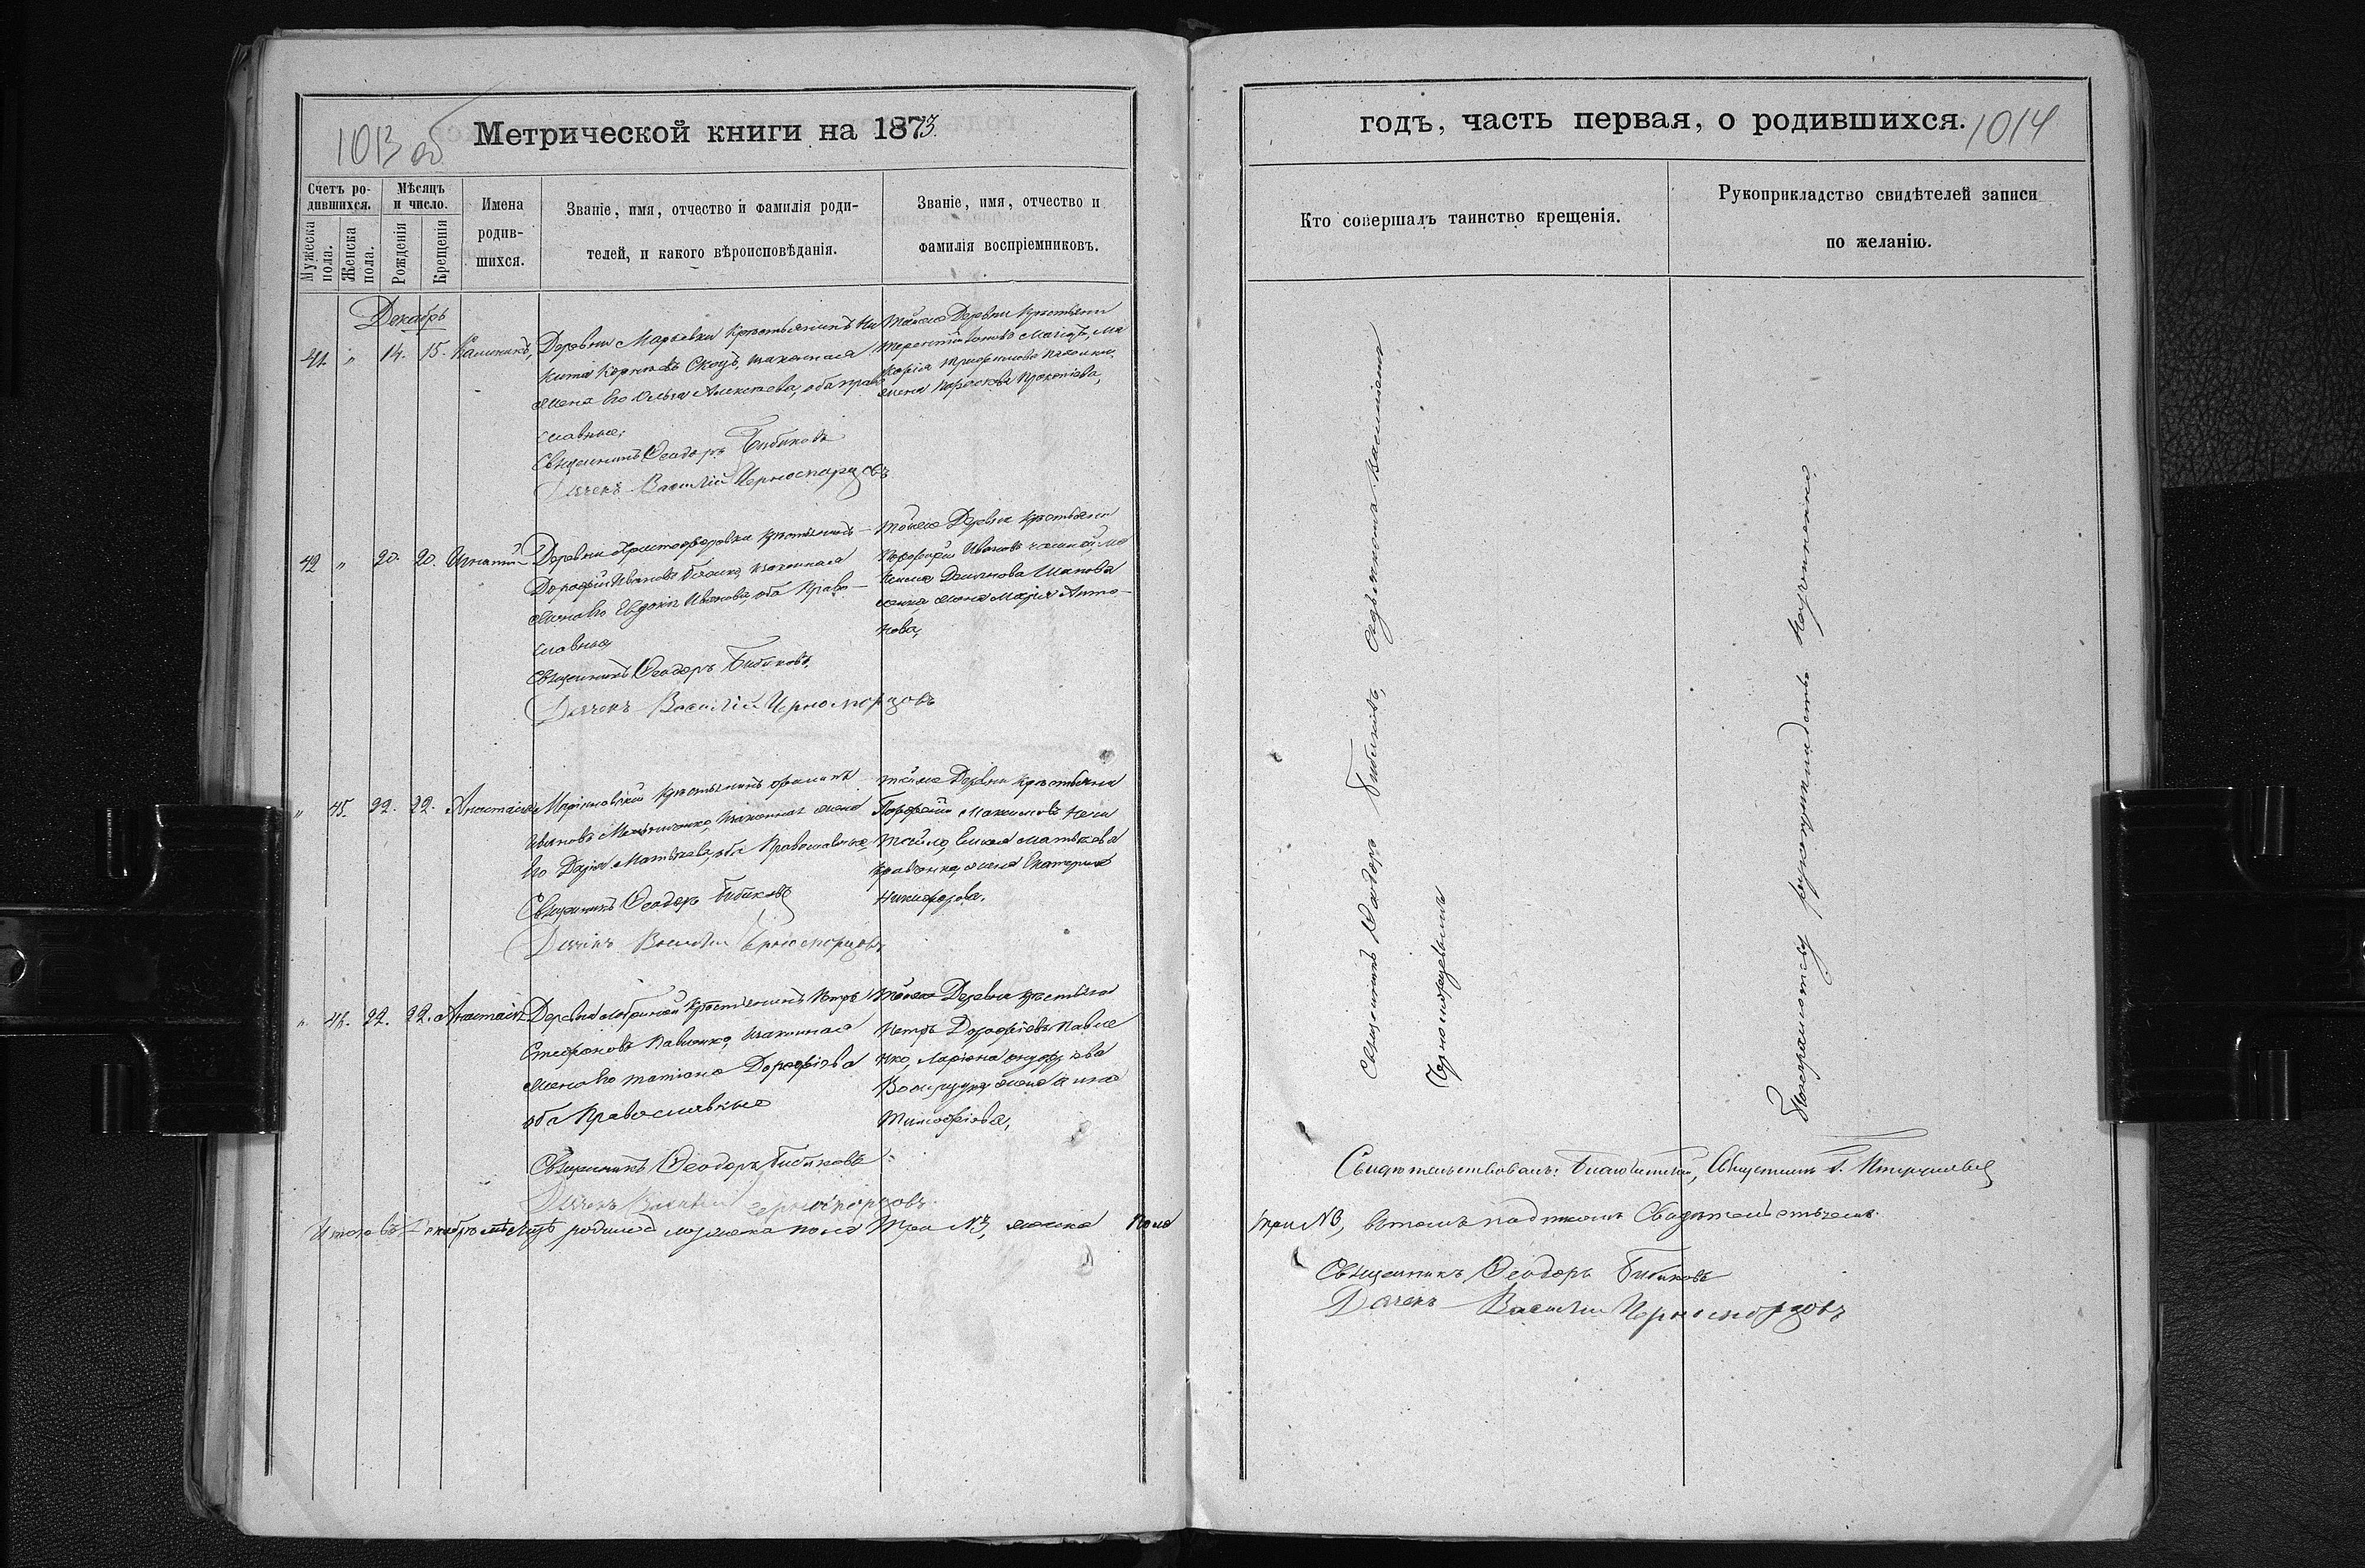 1013 об
Метрической книги на 1873
Счетъ ро-
дившихся.
Мужеска пола.
Женска пола.
Мѣсяцъ
и число.
Рожденія
Крещенія
Имена
родив-
шихся.
Званіе, имя, отчество и фамилія роди-
телей, и какого вѣроисповѣданія.
Званіе, имя, отчество и
фамилія воспріемниковъ.
Декабрь
41. " 14. 15. Калиникъ,
Деревни Марьевки Крестьянинъ Ни
кита Корнѣевъ Скоцъ, законная
жена его Ольга Алексѣева, оба право
славные,
Священникъ Ѳеодоръ Бибиковъ
Дячекъ Василій Черноморцовъ
Тойже Деревни Крестьяни
Терентій
жена Параскева Прокопіева,
42 " 20. 20. Игнатій
Деревни Христофоровки Крестьянинъ
Дорофей Ивановъ законная
жена его Евдокія Иванова, оба Право-
славные,
Священникъ Ѳеодоръ Бибиковъ,
Дячекъ Василій Черноморцовъ
Тойже Деревни Крестьяни
Порфирій Ивановъ
Демьянова Шапова
ленка жена Марія Анто-
нова,
" 45. 22. 22. Анастасія
Крестьянинъ
Ивановъ законная жена
его Дарія Матвѣева, оба Православные,
Священникъ Ѳеодоръ Бибиковъ
Дячекъ Василій Черноморцовъ
Тойже Деревни Крестьяни
Порфирій Максимовъ
Матвѣева
Кравченка, жена Екатерина
Никифорова.
" 46. 22. 22. Анастасія
Деревни Крестьянинъ Петръ
Стефановъ Павленко, законная
жена его Татіана Дорофіева
оба Православные
Священникъ Ѳеодоръ Бибиковъ
Дячекъ Василій Черноморцовъ
Тойже Деревни Крестьяни
Петръ Дорофіевъ Павле
нко,
жена Анна
Тимофіева,
Итого въ Декабрѣ мѣсяцѣ родилось мужеска пола три №3, женска пола
годъ, часть первая, о родившихся. 1014
Кто совершалъ таинство крещенія.
Рукоприкладство свидѣтелей записи
по желанію.
Священникъ Ѳеодоръ Бибиковъ, съ дьячкомъ Василіемъ
Черноморцевымъ
По неграмотству рукоприкладство неучинено
Свидѣтельствовалъ: Благочинный, Священникъ
три №3, въ томъ подписомъ Свидѣтельствуемъ.
Священникъ Ѳеодоръ Бибиковъ
Дячекъ Василій Черноморцовъ